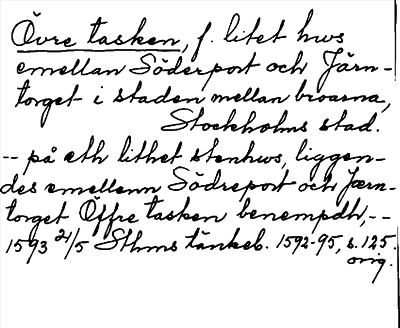 Övre tasken, f. litet hws
emellan Söderport och Järn-
torget i staden mellan broarna,
Stockholms stad.
-- på eth lithet stenhws, liggen-
des emellenn Södreport och Jærn-
torget Öffre tasken benempdh, --
1593 21/5 Sthms tänkeb. 1592-95, s. 125.
orig.